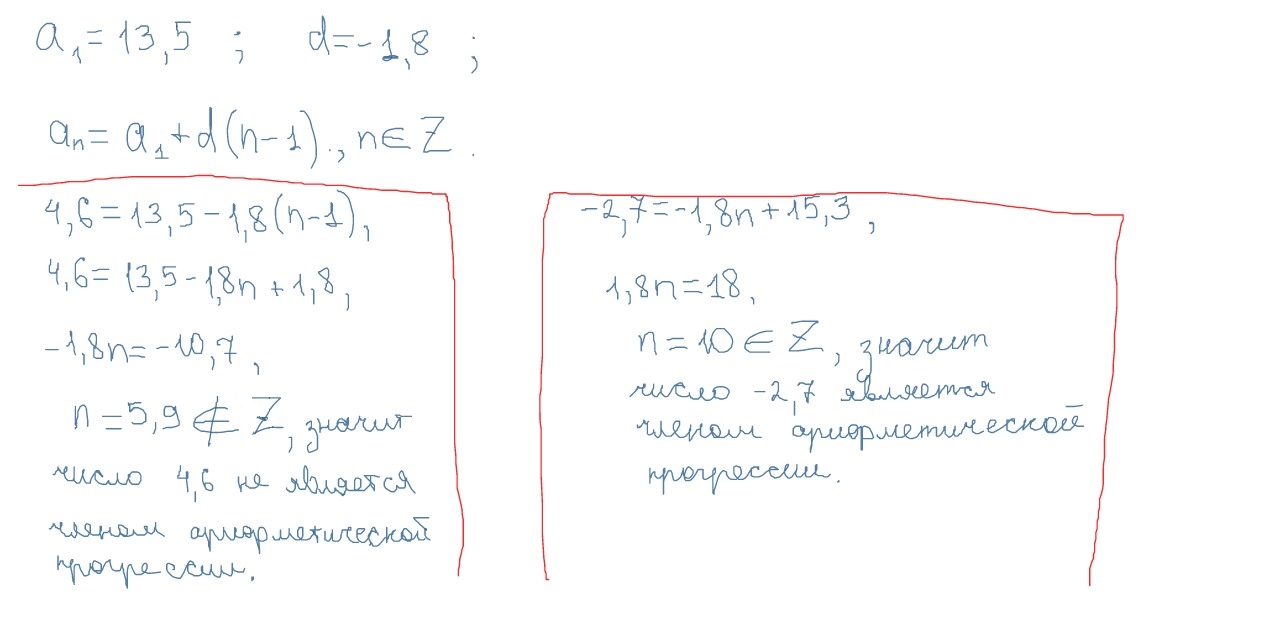 a₁ = 13,5 ; d = -1,8 ;
aₙ = a₁ + d(n-1)., n ∈ Z .
4,6 = 13,5 - 1,8(n-1),
4,6 = 13,5 - 1,8n + 1,8,
-1,8n = -10,7,
n = 5,9 ∉ Z, значит
число 4,6 не является
членом арифметической
прогрессии.
-2,7 = -1,8n + 15,3,
1,8n = 18,
n = 10 ∈ Z, значит
число -2,7 является
членом арифметической
прогрессии.